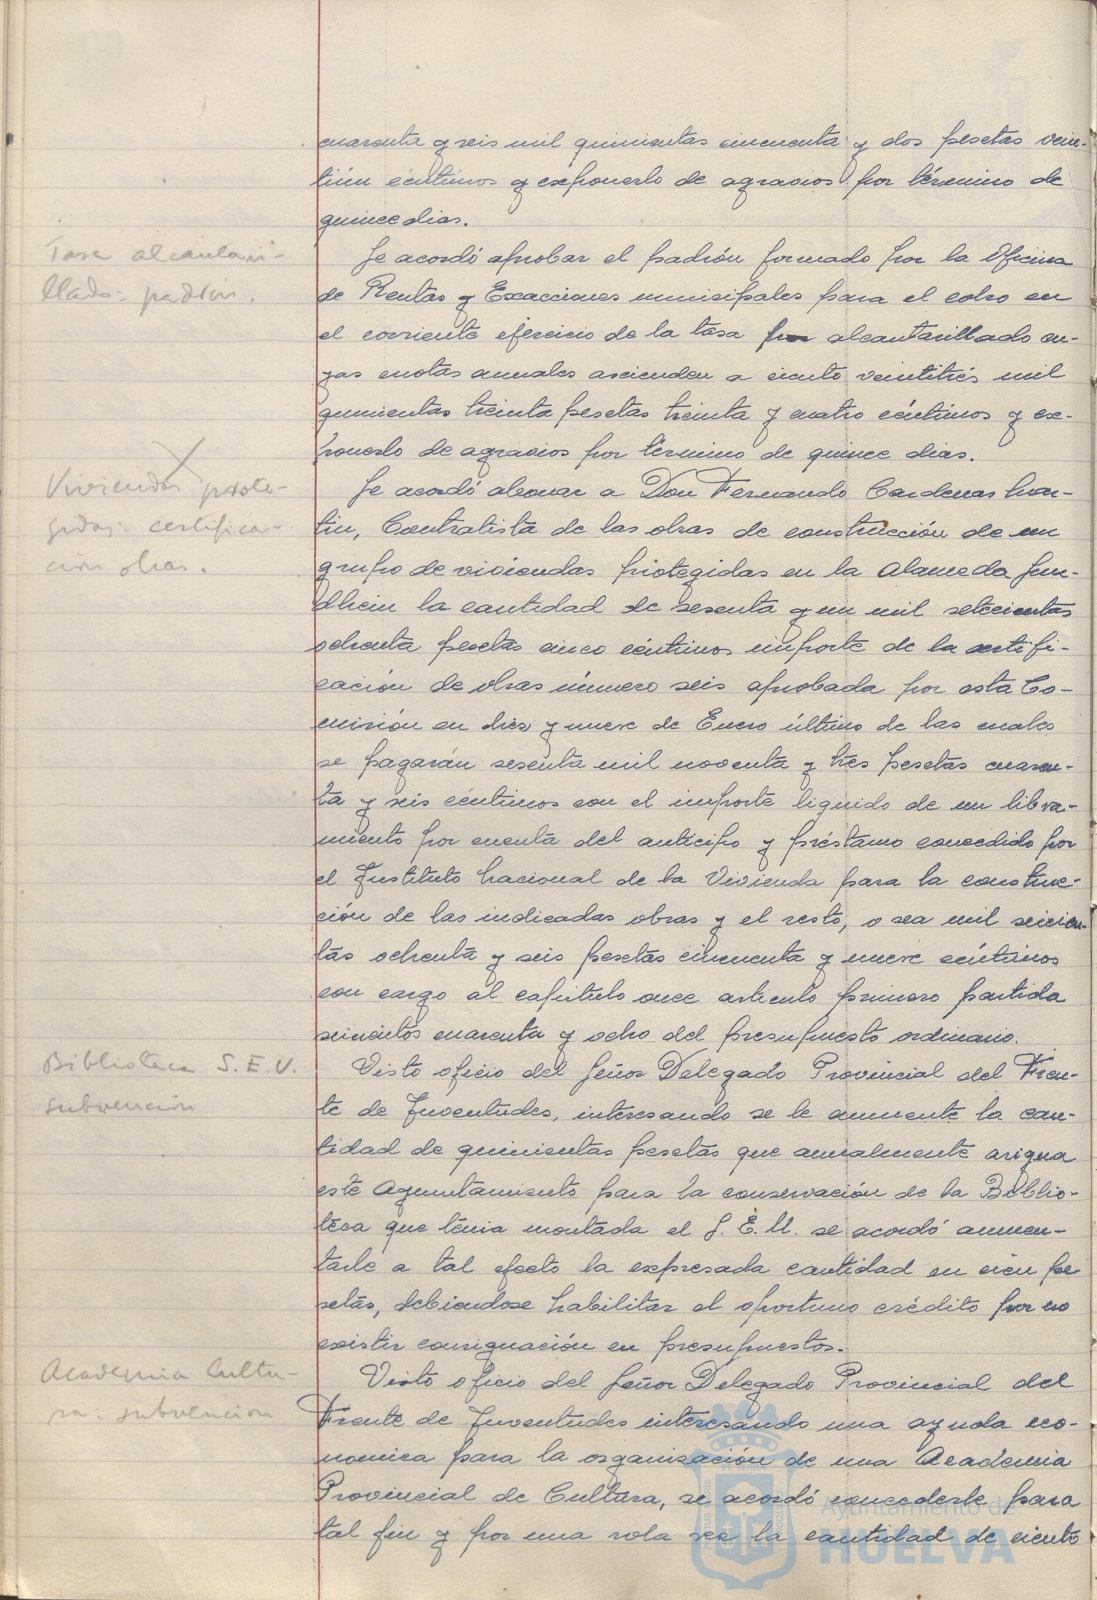 cuarenta y seis mil quinientas cincuenta y dos pesetas vein-
tiún céntimos y exponerlo de agravios por término de
quince dias.
Tasa alcantari-
llado: padrón.
Se acordó aprobar el padrón formado por la Oficina
de Rentas y Exacciones municipales para el cobro en
el corriente ejercicio de la tasa por alcantarillado cu-
yas cuotas anuales ascienden a ciento veintitrés mil
quinientas treinta pesetas treinta y cuatro céntimos y ex-
ponerlo de agravios por término de quince dias.
Viviendas prote-
gidas: certifica-
ción obras.
Se acordó abonar a Don Fernando Cardenas Mar-
tin, Contratista de las obras de construcción de un
grupo de viviendas protegidas en la Alameda Sun-
dhein la cantidad de sesenta y un mil setecientas
ochenta pesetas cinco céntimos importe de la certifi-
cación de obras número seis aprobada por esta Co-
misión en diez y nueve de Enero último de las cuales
se pagarán sesenta mil noventa y tres pesetas cuaren-
ta y seis céntimos con el importe liquido de un libra-
miento por cuenta del anticipo y préstamo concedido por
el Instituto Nacional de la Vivienda para la construc-
ción de las indicadas obras y el resto, o sea mil seicien-
tas ochenta y seis pesetas cincuenta y nueve céntimos
con cargo al capitulo once articulo primero partida
seicientos cuarenta y ocho del presupuesto ordinario.
Biblioteca S.E.U.
subvención
Visto oficio del Señor Delegado Provincial del Fren-
te de Juventudes, interesando se le aumente la can-
tidad de quinientas pesetas que anualmente asigna
este Ayuntamiento para la conservación de la Biblio-
teca que tenia montada el S.E.U. se acordó aumen-
tarle a tal efecto la expresada cantidad en cien pe
setas, debiendose habilitar el oportuno crédito por no
existir consignación en presupuestos.
Academia Cultu-
ra: subvencion
Visto oficio del Señor Delegado Provincial del
Frente de Juventudes interesando una ayuda eco-
nomica para la organización de una Academia
Provincial de Cultura, se acordó concederle para
tal fin y por una sola vez la cantidad de ciento
Ayuntamiento de
HUELVA